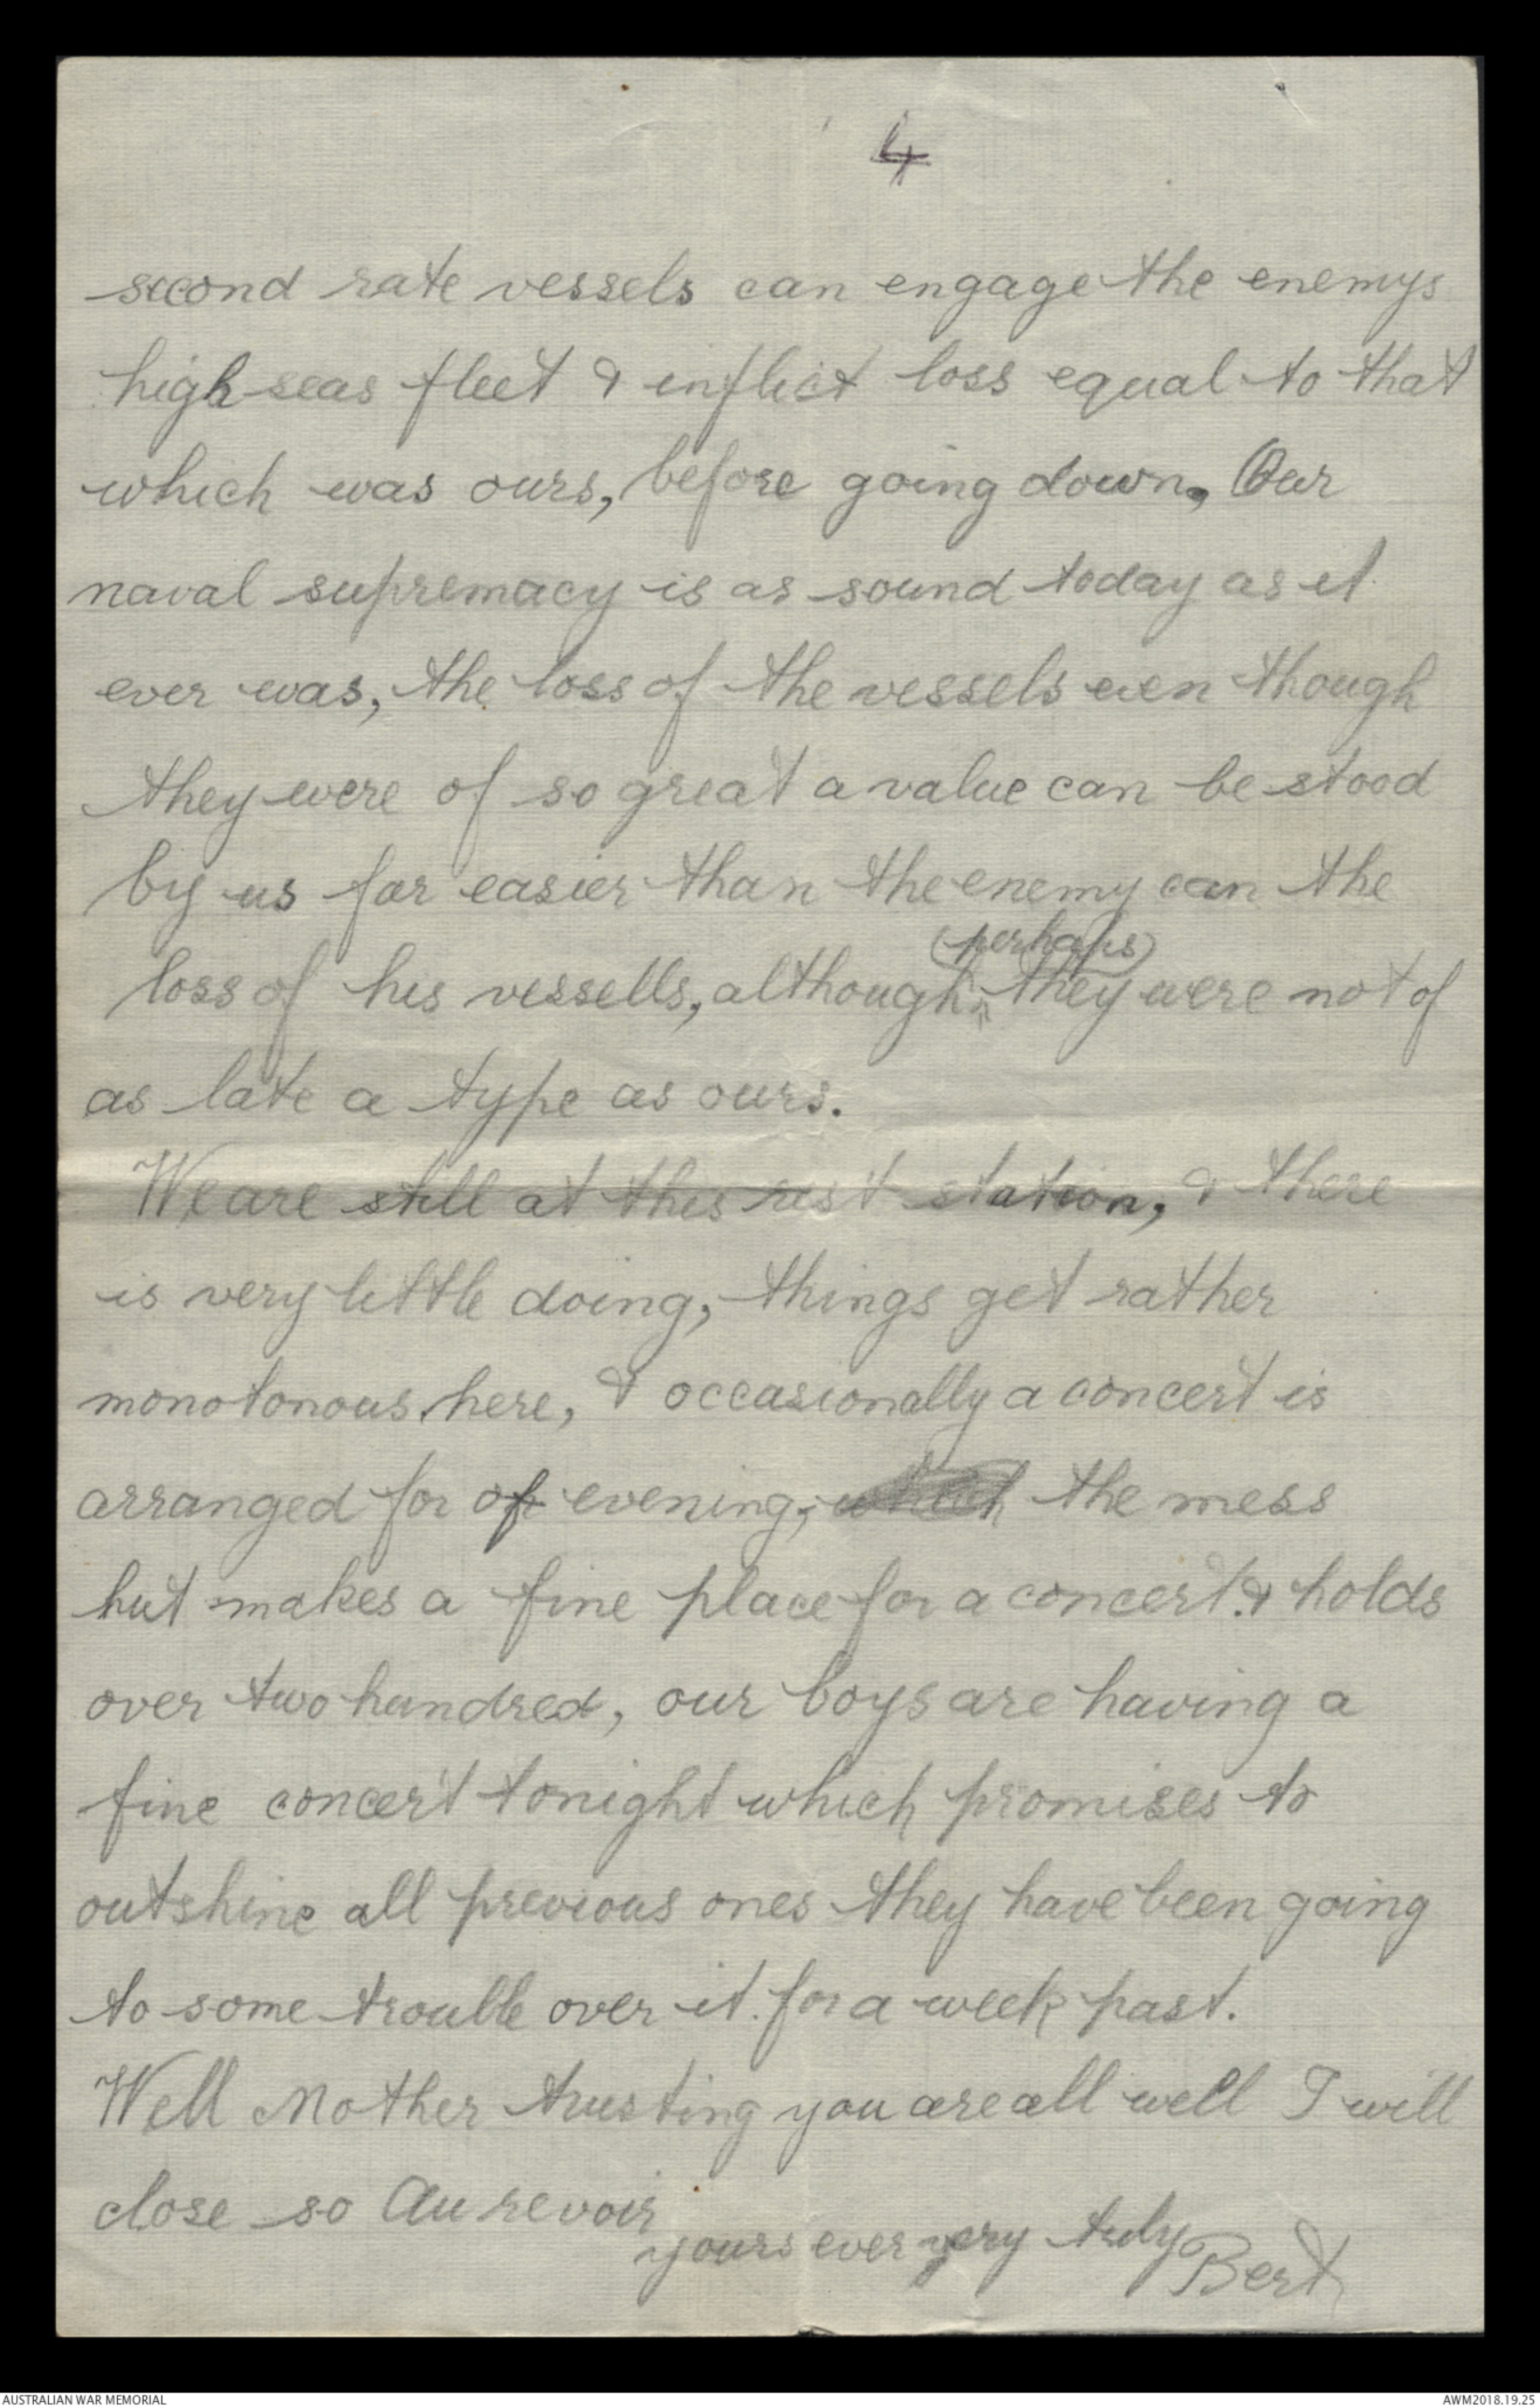 4
second rate vessels can engage the enemys
high seas fleet & inflict loss equal to that
which was ours, before going down. Our
naval supremacy is as sound today as it
ever was, the loss of the vessels even though
they were of so great a value can be stood
by us far easier than the enemy can the
(perhaps)
loss of his vessells, although they were not of
as late a type as ours.
We are still at this rest station, & there
is very little doing, things get rather
monotonous here, & occasionally a concert is
arranged for of evening, which the mess
hut makes a fine place for a concert & holds
over two hundred, our boys are having a
fine concert tonight which promises to
outshine all previous ones they have been going
to some trouble over it for a week past.
Well Mother trusting you are all well I will
close so Au revoir
yours ever very truly
Bert
AUSTRALIAN WAR MEMORIAL
AWM2018.19.25